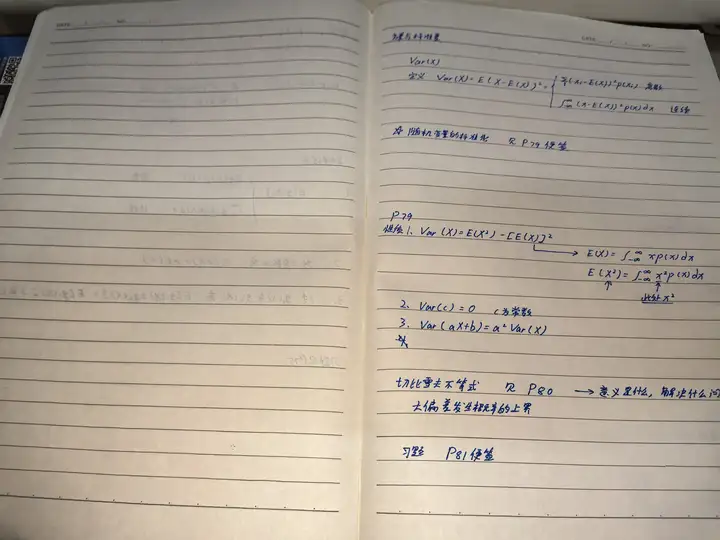 方差与标准差
Var(X)
定义 Var(X) = E(X-E(X))² = { Σ(xi-E(X))²p(xi) 离散
∫_{-∞}^{∞} (x-E(X))²p(x)dx 连续
☆ 随机变量的标准化 见 P79 便签
P79
性质 1. Var(X) = E(X²) - [E(X)]²
→ E(X) = ∫_{-∞}^{∞} xp(x)dx
E(X²) = ∫_{-∞}^{∞} x²p(x)dx
↑ ↑
此处 x²
2. Var(c) = 0 c为常数
3. Var(aX+b) = a²Var(X)
切比雪夫不等式 见 P80 → 意义是什么, 解决什么问
大偏差发生概率的上界
习题 P81 便签